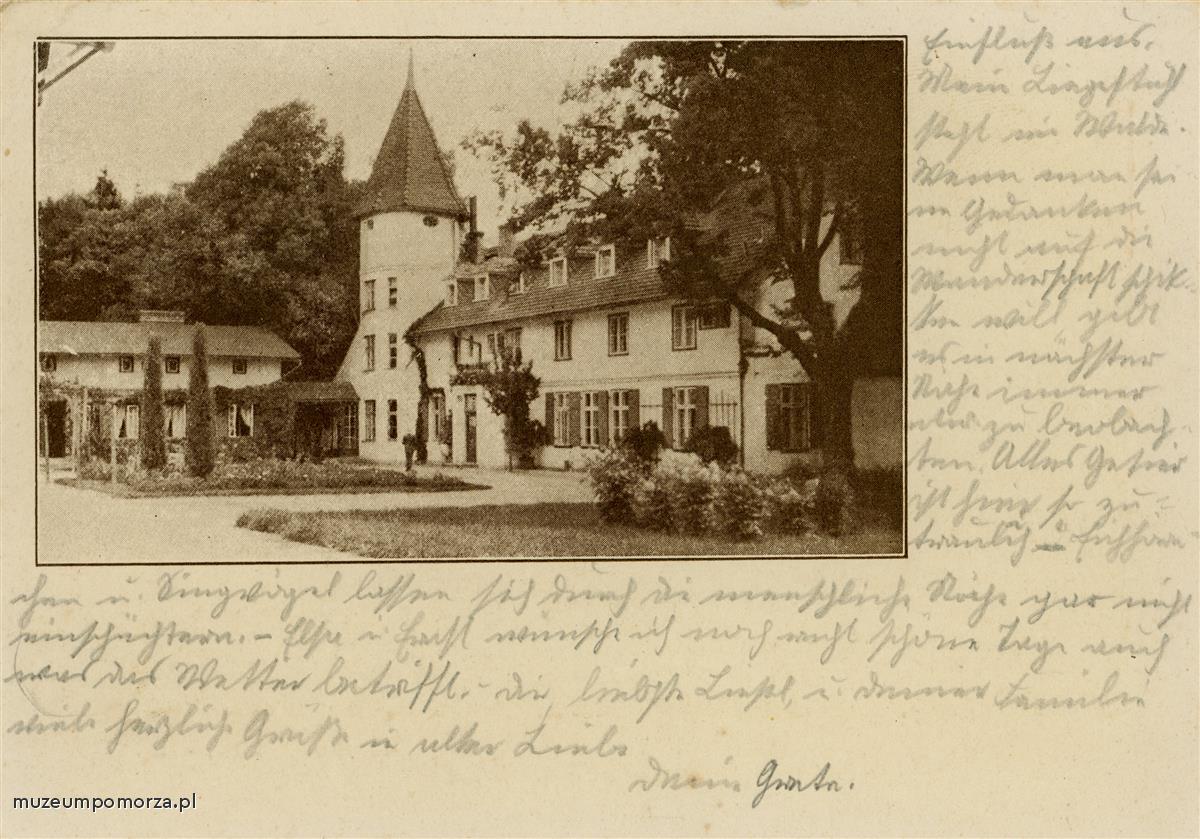 Einfluß aus.
Mein Liegestuhl
steht im Walde.
Wenn man sei
ne Gedanken
nicht auf die
Wanderschaft schik-
ken will, gibt
es in nächster
Nähe immer
was zu beobach-
ten. Alles Getier
ist hier so zu-
traulich u. Eichhörn
chen u. Singvögel lassen sich durch die menschliche Nähe gar nicht
einschüchtern. – Else u. Ernst wünsche ich noch recht schöne Tage auch
was das Wetter betrifft. – Dir, liebste Liesel, u. Deiner Familie
viele herzliche Grüße in alter Liebe
Deine Grete.
muzeumpomorza.pl